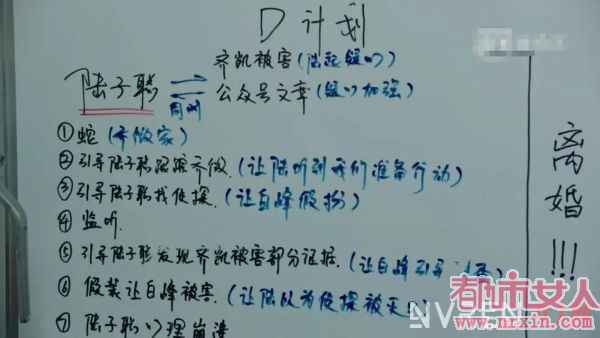 D计划
齐凯被害(陆起疑心)
陆子聪
公众号文章(疑心加强)
周圳
①蛇(齐微家)
②引导陆子聪跟踪齐微.(让陆听到我们准备行动)
③引导陆子聪找侦探.(让白峰假扮)
④监听.
⑤引导陆子聪发现齐凯被害部分证据.(让白峰引导
⑥假装让白峰被害.(让陆以为侦探被灭口)
⑦陆子聪心理崩溃
离婚!!!
都市女人
www.nrxin.com